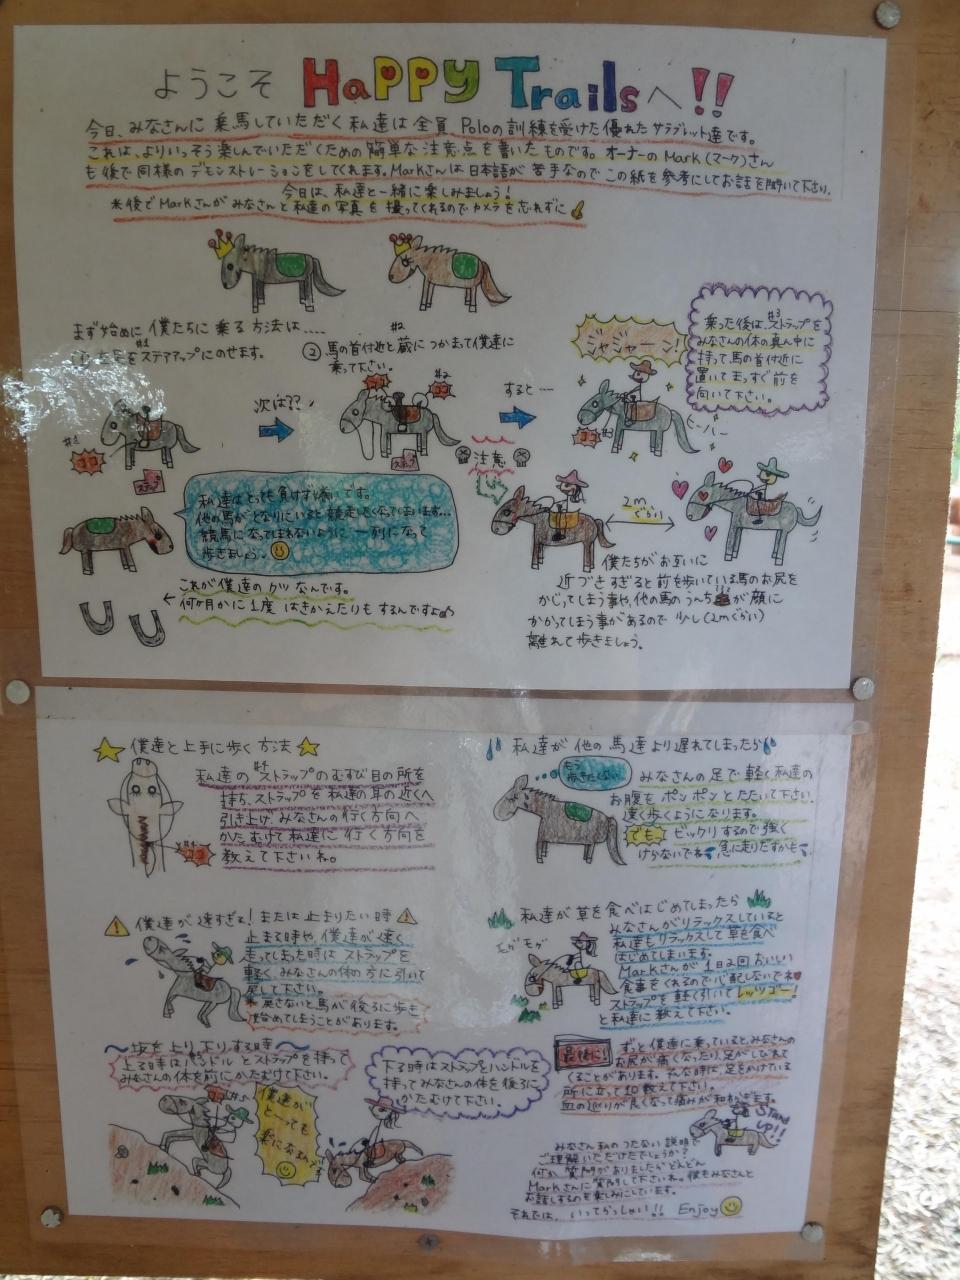 ようこそ HaPPY Trails へ!!
今日、みなさんに 乗馬していただく 私達は 全員 Poloの訓練を受けた 優れた サラブレット達です。
これは、よりいっそう楽しんでいただくための 簡単な 注意点 を書いた ものです。オーナーの Mark (マーク)さん
も後で同様の デモンストレーションをしてくれます。Markさんは 日本語が 苦手なので この紙を参考にしてお話を聞いて下さい。
今日は、私達と一緒に楽しみましょう!
※後でMarkさんが みなさんと 私達の写真 を 撮ってくれるので カメラを忘れずに
まず始めに 僕たちに 乗る 方法は....
#1
をステップにのせます。
#2
② 馬の首付近と 蔵に つかまって僕達に
乗って下さい。
ジャジャーン!
#3
乗った後は、ストラップを
みなさんの体の真ん中に
持って、馬の首付近に
置いて まっすぐ前を
向いて下さい。
次は??
すると....
ココ
#2
ココ
ココ
ココ #3
ステップ
ステップ
ヒーハー
注意
私達はとっても負けず嫌いです。
他の馬がとなりにいると競走したくなってしまいます...
競馬になってしまわないように 一列になって
歩きましょう。
2m
ぐらい
これが僕達の クツ なんです。
何ヶ月かに 1度 はきかえたりも するんですよ
僕たちがお互いに
近づきすぎると 前を歩いている馬のお尻を
かじってしまう事や、他の馬の うんち が 顔に
かかってしまう事があるので 少し(2mぐらい)
離れて 歩きましょう。
僕達と上手に歩く方法
私達の ストラップのむすび目の所を
持ち、ストラップを 私達の耳の近くへ
引き上げ、みなさんの行く方向へ
かたむけて私達に 行く方向を
教えて下さいね。
ココ
私達が 他の 馬達より遅れてしまったら
もう
歩きたくない
みなさんの足で 軽く私達の
お腹を ポンポンと たたいて下さい。
速く歩くようになります。
でも ビックリするので強く
けらないでね 急に走りだすかも
僕達が速すぎる! または 止まりたい 時
止まる時や、僕達が速く
走ってしまった時は ストラップを
軽く、みなさんの体の方に引いて
戻して下さい。
※戻さないと馬が後ろに歩き
始めてしまうことがあります。
私達が草を食べはじめてしまったら
みなさんがリラックスしていると
私達もリラックスして草を食べ
はじめてしまいます。
Markさんが 1日2回おいしい
食事をくれるので心配しないでね
ストラップを軽く引いて レッツゴー!
と私達に 教えて下さい。
モグモグ
坂を上り、下りする時
上る時は、 ドルとストラップを持って
みなさんの体を前にかたむけて下さい。
下る時はストラップとハンドルを
持ってみなさんの体を後ろに
かたむけて下さい。
僕達が
と〜っても
楽になるんです
最後に!
ずっと僕達に乗っていると、みなさんの
お尻が痛くなったり、足がしびれて
くることがあります。そんな時は、足をかけている
所に立って10数えて下さい。
血の巡りが良くなって痛みが和らぎます。
STand
UP!!
みなさん 私のつたない説明で
ご理解いただけたでしょうか?
何か 質問がありましたらどんどん
Markさんに質問して下さいね。僕もみなさんと
お話しするのを楽しみにしています。
それでは、いってらっしゃい!! Enjoy